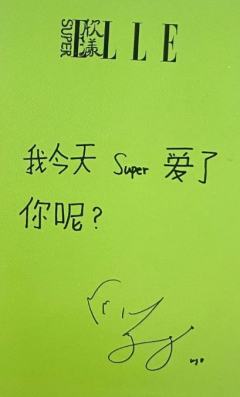 SUPER ELLE 欣漾
我今天 Super 爱了
你呢?